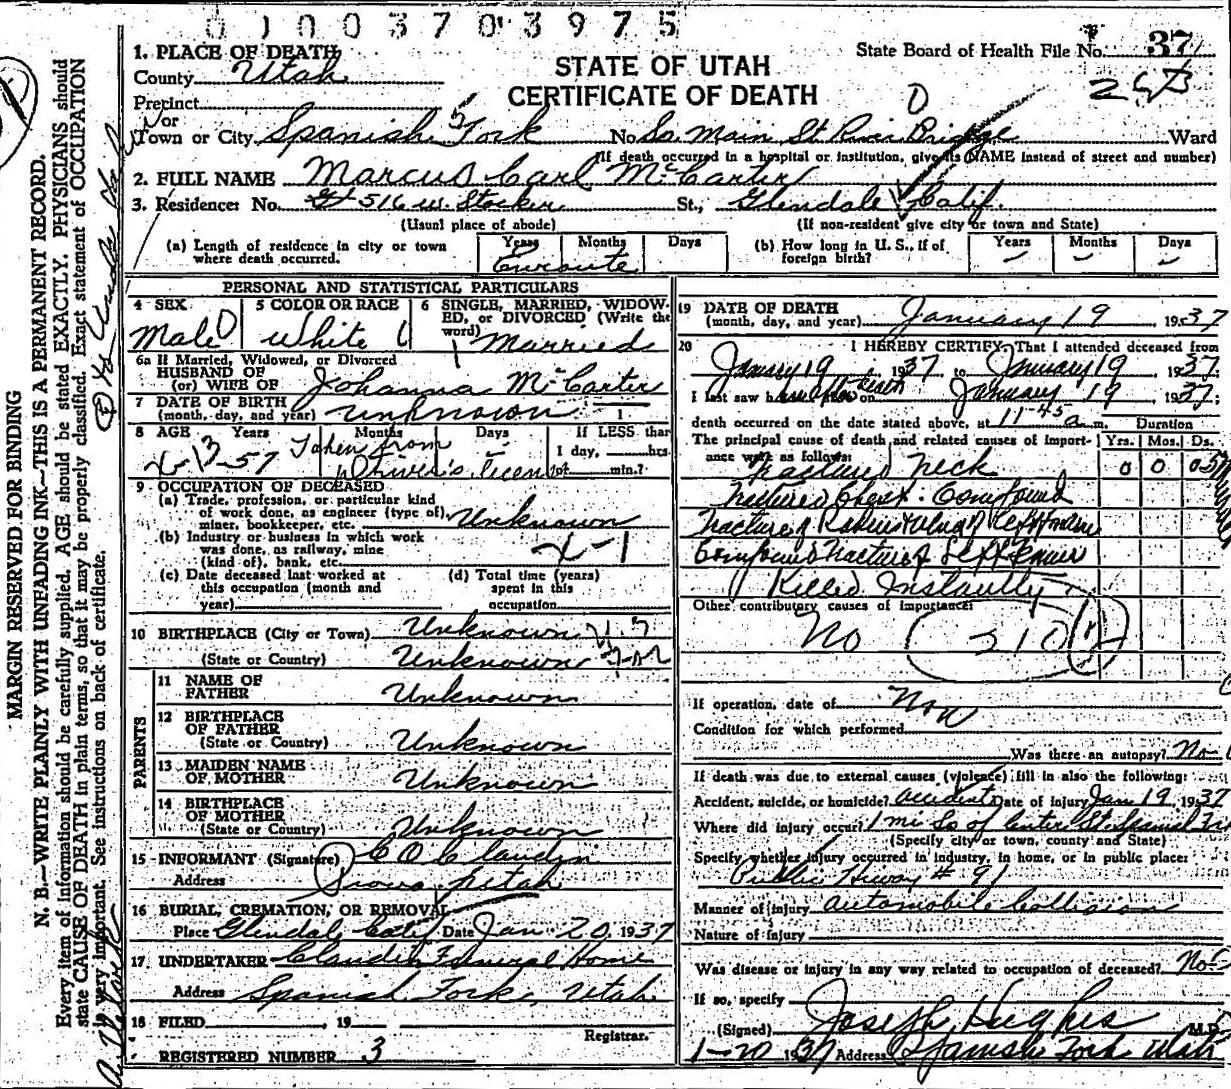 0100370397 5
State Board of Health File No. 37
STATE OF UTAH
CERTIFICATE OF DEATH
1. PLACE OF DEATH
County Utah
Precinct
or
Town or City Spanish Fork No. So. Main St River Bridge Ward
(If death occurred in a hospital or institution, give its NAME instead of street and number)
2. FULL NAME Marcus Carl McCarter
3. Residence: No. 516 W. Stocker St., Glendale Calif.
(Usual place of abode) (If non-resident give city or town and State)
(a) Length of residence in city or town where death occurred. Years Months Days
Enroute
(b) How long in U. S., if of foreign birth? Years Months Days
PERSONAL AND STATISTICAL PARTICULARS
4 SEX
Male
5 COLOR OR RACE
White
6 SINGLE, MARRIED, WIDOWED, or DIVORCED (Write the word)
Married
6a If Married, Widowed, or Divorced
HUSBAND OF
(or) WIFE OF Johanna McCarter
7 DATE OF BIRTH
(month, day, and year) unknown
8 AGE Years Months Days If LESS than
1 day, hrs.
or min.?
4-13-57 Taken from
Driver's licen
9 OCCUPATION OF DECEASED
(a) Trade, profession, or particular kind
of work done, as engineer (type of),
miner, bookkeeper, etc. Unknown
(b) Industry or business in which work
was done, as railway, mine
(kind of), bank, etc.
(c) Date deceased last worked at
this occupation (month and
year)
(d) Total time (years)
spent in this
occupation
10 BIRTHPLACE (City or Town) Unknown
(State or Country) Unknown
PARENTS
11 NAME OF
FATHER Unknown
12 BIRTHPLACE
OF FATHER
(State or Country) Unknown
13 MAIDEN NAME
OF MOTHER Unknown
14 BIRTHPLACE
OF MOTHER
(State or Country) Unknown
15 INFORMANT (Signature) C O Claudin
Address Provo, Utah
16 BURIAL, CREMATION, OR REMOVAL
Place Glendal, Calif. Date Jan. 20, 1937
17 UNDERTAKER Claudin Funeral Home
Address Spanish Fork, Utah
18 FILED , 19
Registrar.
REGISTERED NUMBER 3
19 DATE OF DEATH
(month, day, and year) January 19 1937
20 I HEREBY CERTIFY, That I attended deceased from
January 19, 1937 to January 19 1937
I last saw h after death on January 19 1937
death occurred on the date stated above, at 11-45 a.m. Duration
The principal cause of death and related causes of importance were as follows: Yrs. Mos. Ds.
Fractured neck 0 0 0
Fractured Chest. Compound
Fracture of Radius & Ulna of Left
Compound Fracture of Left Femur
Killed Instantly
Other contributory causes of importance:
No 210
If operation, date of Non
Condition for which performed
Was there an autopsy? No
If death was due to external causes (violence) fill in also the following:
Accident, suicide, or homicide? accident Date of injury Jan 19 1937
Where did injury occur? 1 mi So of Center St Spanish
(Specify city or town, county and State)
Specify whether injury occurred in industry, in home, or in public place:
Public Hiway # 91
Manner of injury automobile Collision
Nature of injury
Was disease or injury in any way related to occupation of deceased? No
If so, specify
(Signed) Joseph Hughes M.D.
1-20 1937 Address Spanish Fork Utah
MARGIN RESERVED FOR BINDING
N. B.—WRITE PLAINLY WITH UNFADING INK—THIS IS A PERMANENT RECORD.
Every item of information should be carefully supplied. AGE should be stated EXACTLY. PHYSICIANS should
state CAUSE OF DEATH in plain terms, so that it may be properly classified. Exact statement of OCCUPATION
is very important. See instructions on back of certificate.